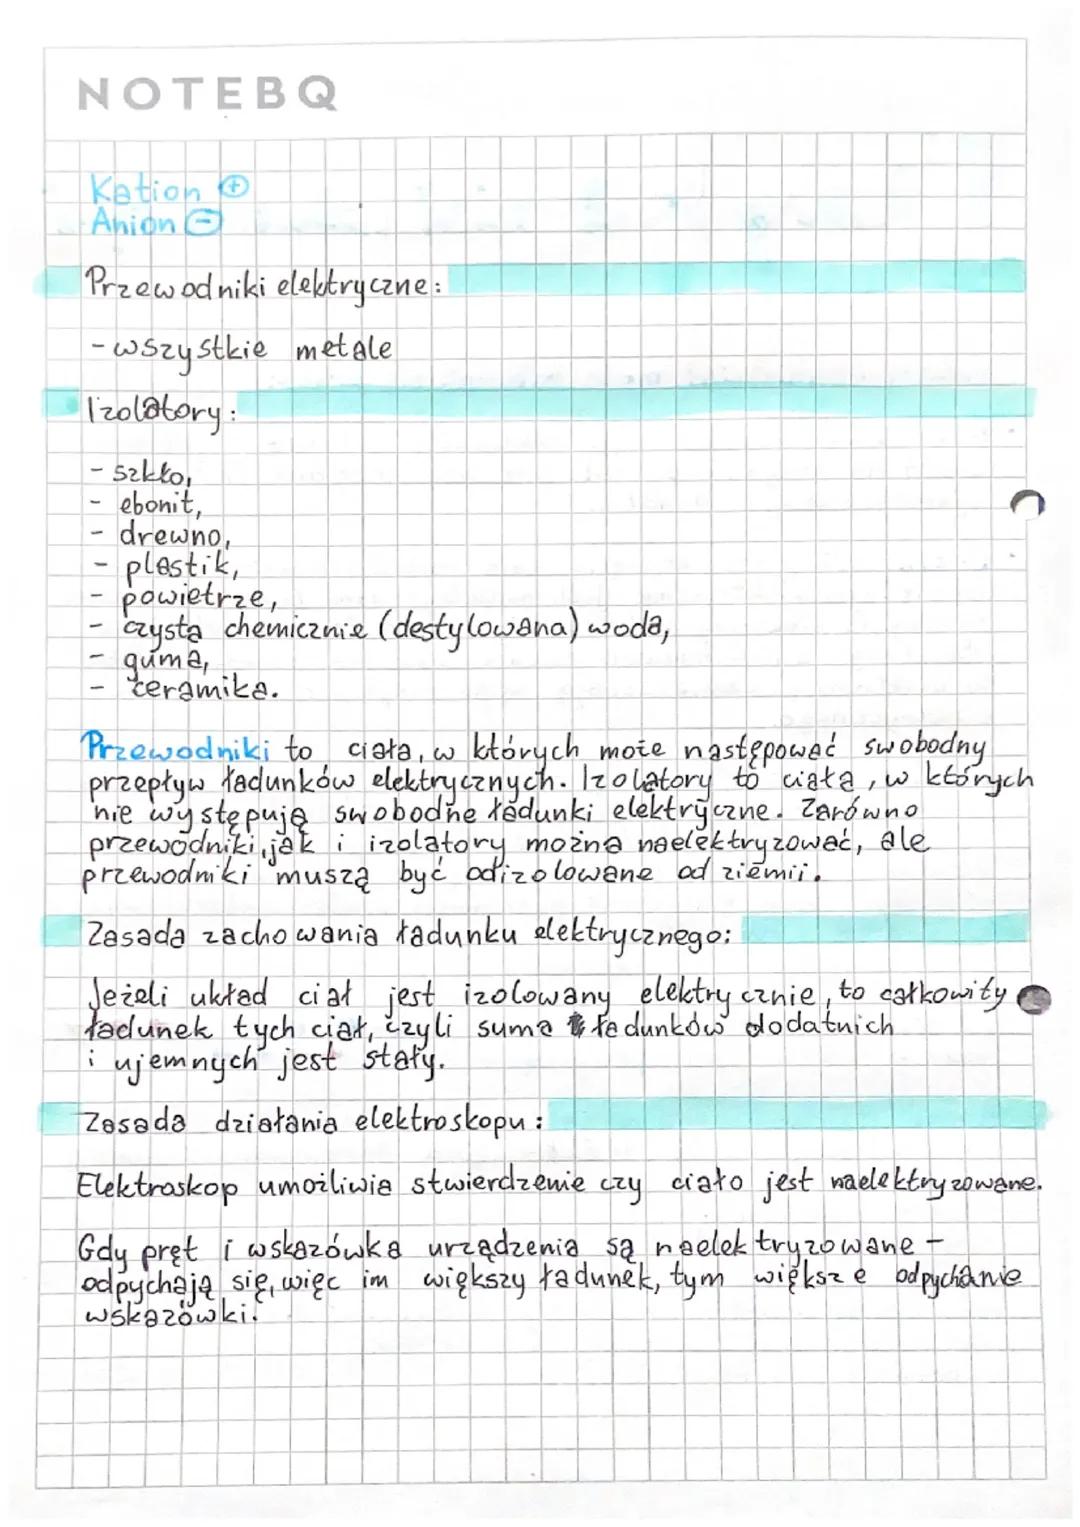 NOTEBQ
Kation ⊕
Anion ⊖
Przewodniki elektryczne:
- wszystkie metale
Izolatory:
- szkło,
- ebonit,
- drewno,
- plastik,
- powietrze,
- czysta chemicznie (destylowana) woda,
- guma,
- ceramika.
Przewodniki to ciała, w których może następować swobodny
przepływ ładunków elektrycznych. Izolatory to ciała, w których
nie występują swobodne ładunki elektryczne. Zarówno
przewodniki, jak i izolatory można naelektryzować, ale
przewodniki muszą być odizolowane od ziemii.
Zasada zachowania ładunku elektrycznego:
Jeżeli układ ciał jest izolowany elektrycznie, to całkowity
ładunek tych ciał, czyli suma ładunków dodatnich
i ujemnych jest stały.
Zasada działania elektroskopu:
Elektroskop umożliwia stwierdzenie czy ciało jest naelektryzowane.
Gdy pręt i wskazówka urządzenia są naelektryzowane -
odpychają się, więc im większy ładunek, tym większe odpychanie
wskazówki.